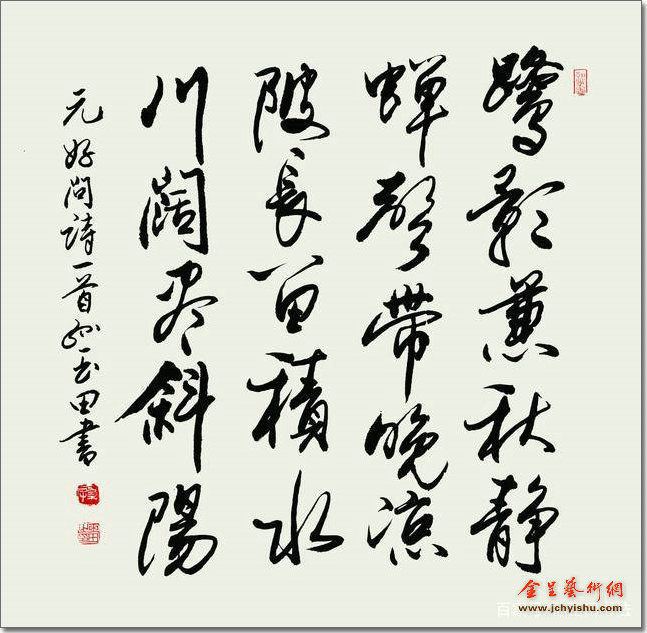 鷺影兼秋静
蟬聲帶晚凉
陂長留積水
川闊尽斜陽
元好問詩一首 孫玉田書
金呈藝術網
www.jchyishu.com